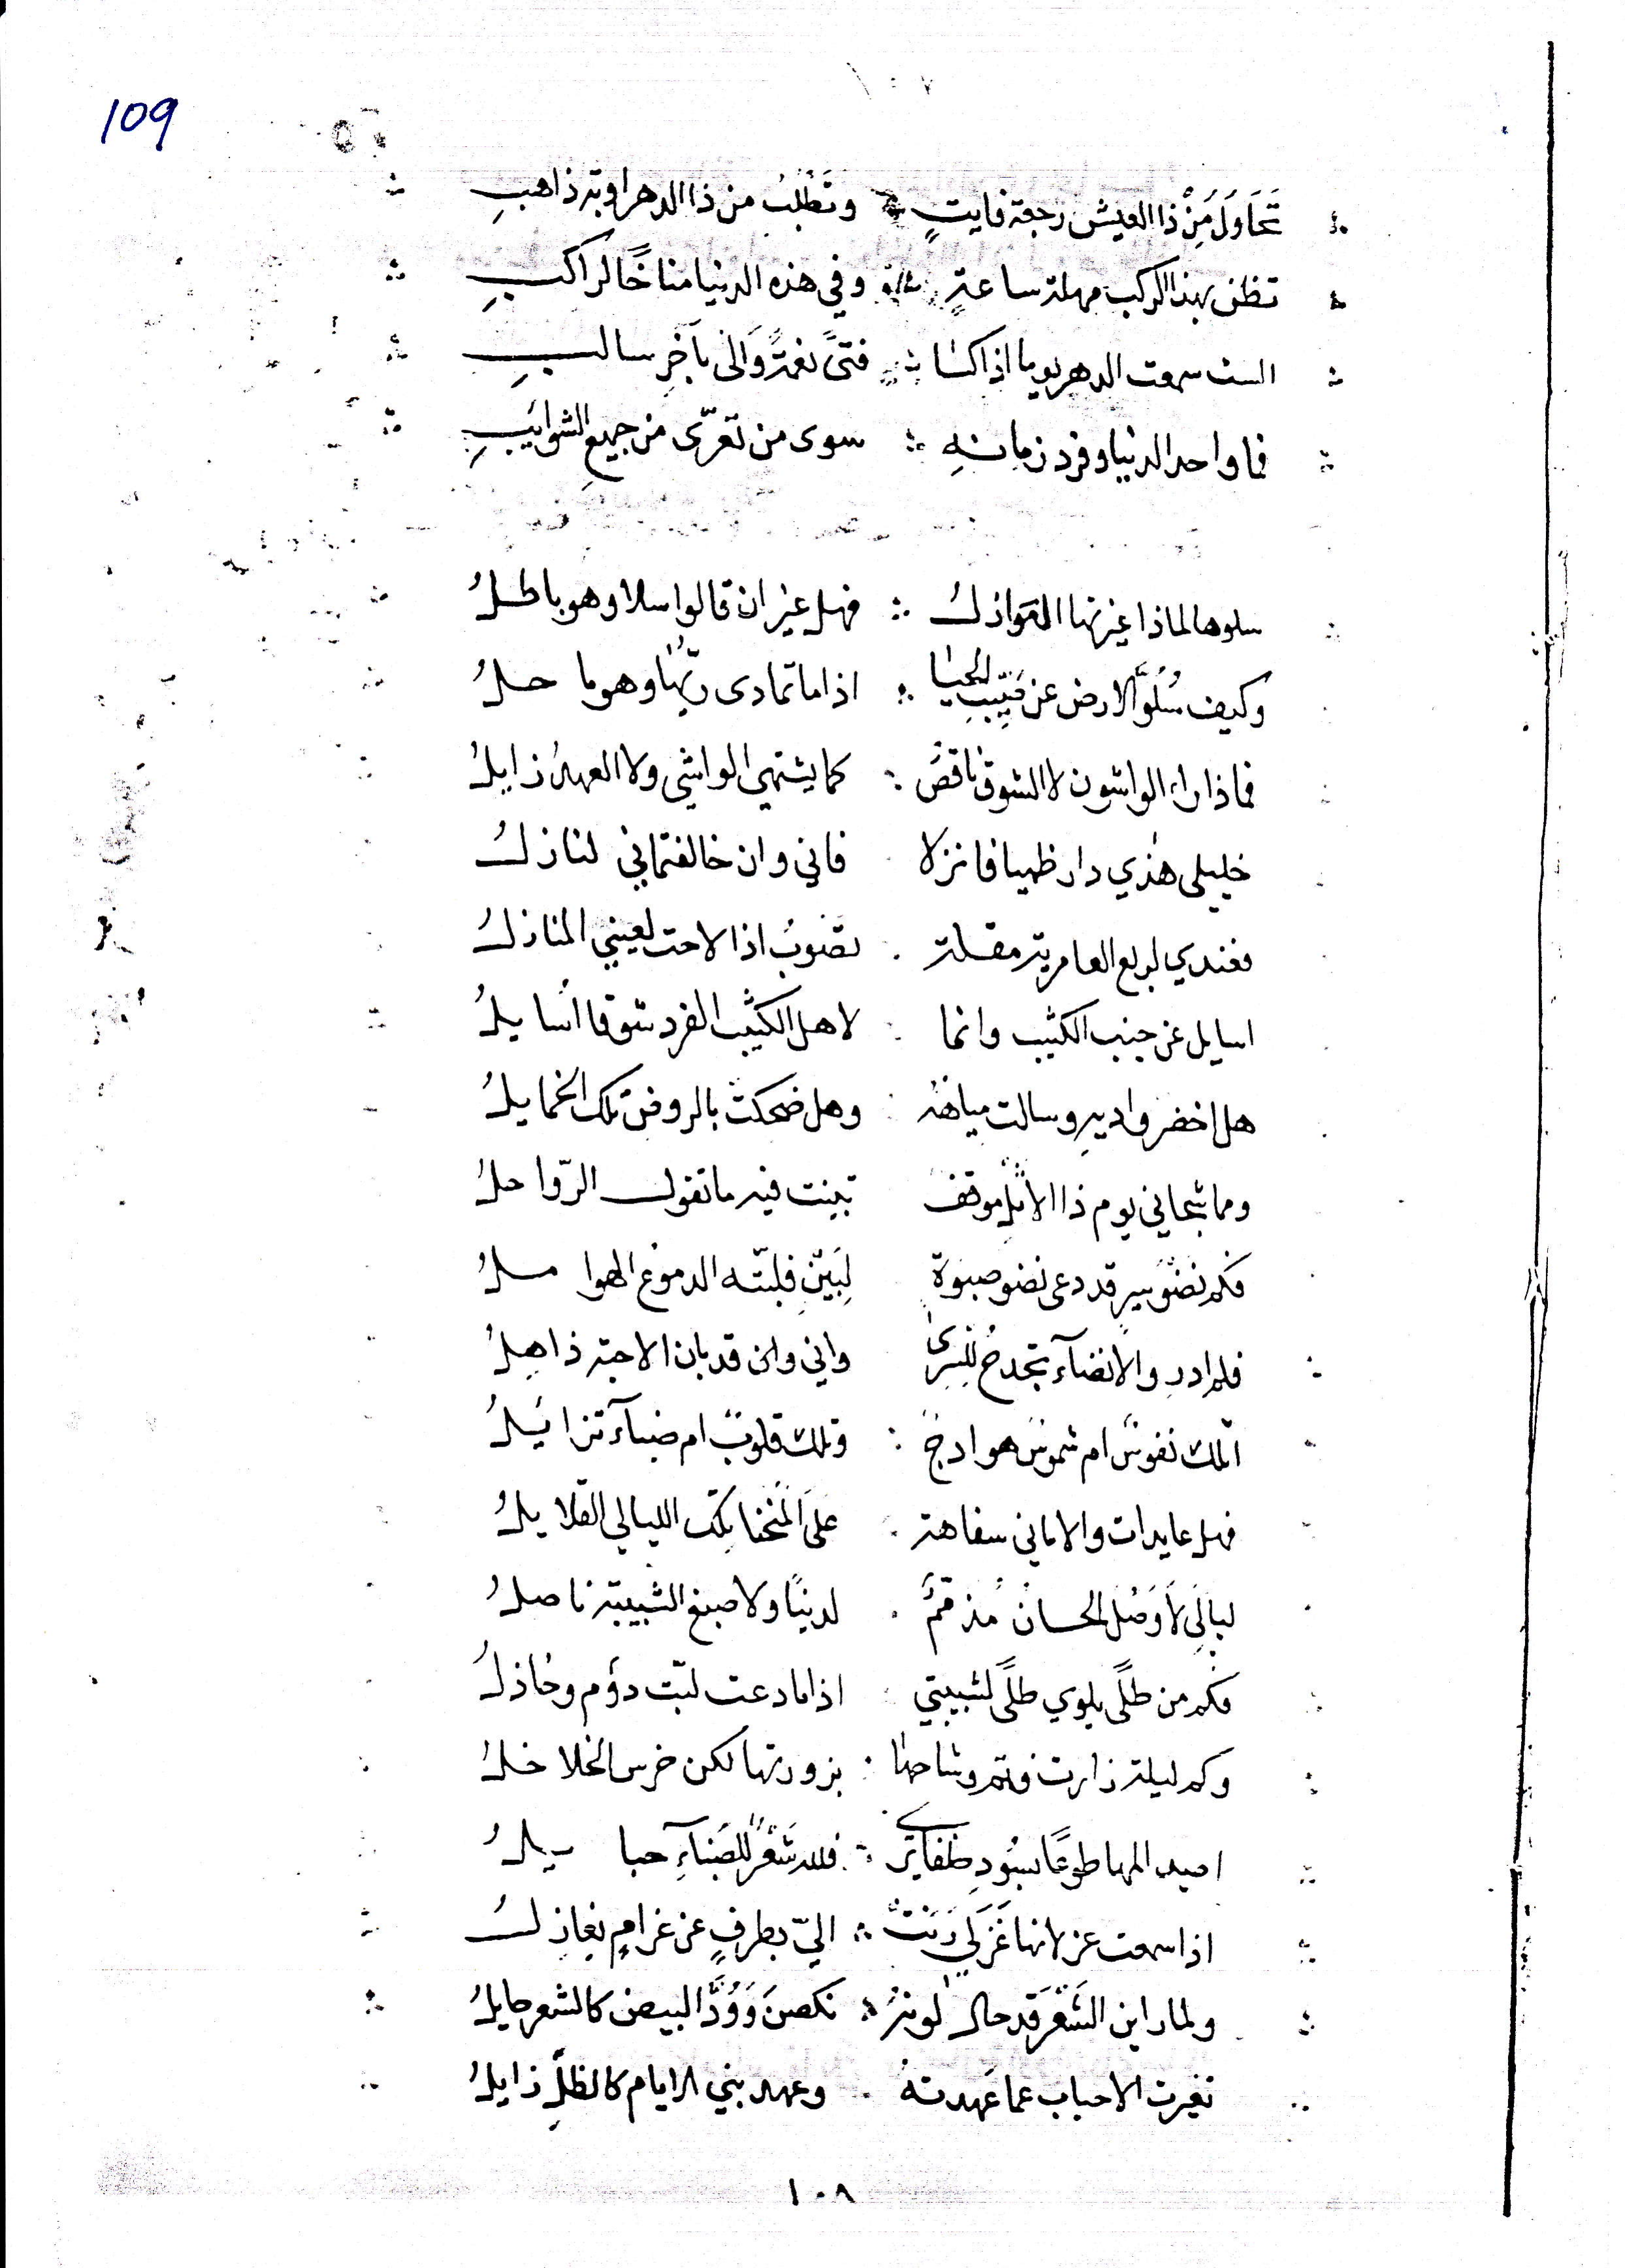 109
تَحَاوَلَ مِنْ ذا العيش رجعة فايتٍ وتَطْلُبُ من ذا الدهر اوبة ذاهبِ
تظن بهذا الركب مهلة ساعةٍ وفي هذه الدنيا مناخًا لراكبِ
الست سمعت الدهر يوما اذا كسا فتىً نعمةً وَالى بآخرِ سالبِ
فما واحد الدنيا وفرد زمانهِ سوى من تعرّى من جميعِ الشوايبِ
سلوها لماذا غيرتها العواذلُ فهل غير ان قالوا سلا وهو باطلُ
وكيف سُلُوَّ الارض عن صَيِّبِ الحيا اذا ما تمادى ريّهُا وهو ما حلُ
فماذا راء الواشون لا الشوق ناقصٌ كما يشتهي الواشي ولا العهدُ زايلُ
خليلى هذي دار ظميا فانزلا فاني وان خالفتماني لنازلُ
فعندي لربع العامرية مقلة تصوبُ اذا لاحت لعيني المنازلُ
اسايل عن جنب الكثيب وانما لاهل الكثيب الفرد شوقا اُسايلُ
هل اخضر واديهِ وسالت مياهُهُ وهل ضحكت بالروض تلك الخمايلُ
ومما شجاني يوم ذا الاثلِ موقفٌ تبينت فيه ما تقول الرّواحلُ
فكم نضوُ سيرٍ قد دعى نضو صبوة لِبَيْنٍ فلبّته الدموع الهواملُ
فلم ادرِ والانضآء تجدحُ للسِرى واني وان قد بان الاحبة ذاهلُ
اتلك نفوسٌ ام شموسُ هوادجٌ وتلك قلوبٌ ام ضبآءٌ تزايَلُ
فهل عايدات والاماني سفاهة علىَ المنحنا تلك الليالي القلايلُ
ليالِيَ لاَ وَصْلُ الحسان مُذمّمٌ لدينَا ولا صبغ الشبيبة ناصلُ
فكم من طلًى يلوي طلًى لشبيبتي اذا ما دعت لبّت دؤم وخاذلُ
وكم ليلة زارت فنم وشاحها بزورتها لكن خرس الخلاخلُ
اصيد المها طوعًا بسُودِ ظفايرى فلله شَعْرٌ للضَبآءِ حبايلُ
اذا سمعت غزلانها غَزَلي رَنَتْ اليّ بطرفٍ عن غرامٍ يغازلُ
ولما راين الشَعْرَ قد حال لونهُ نكصنَ وَوُدُّ البيض كالشعر حايلُ
تغيرت الاحباب عما عَهدتهُ وعهد بني الايام كالظلِّ زايلُ
١٠٨